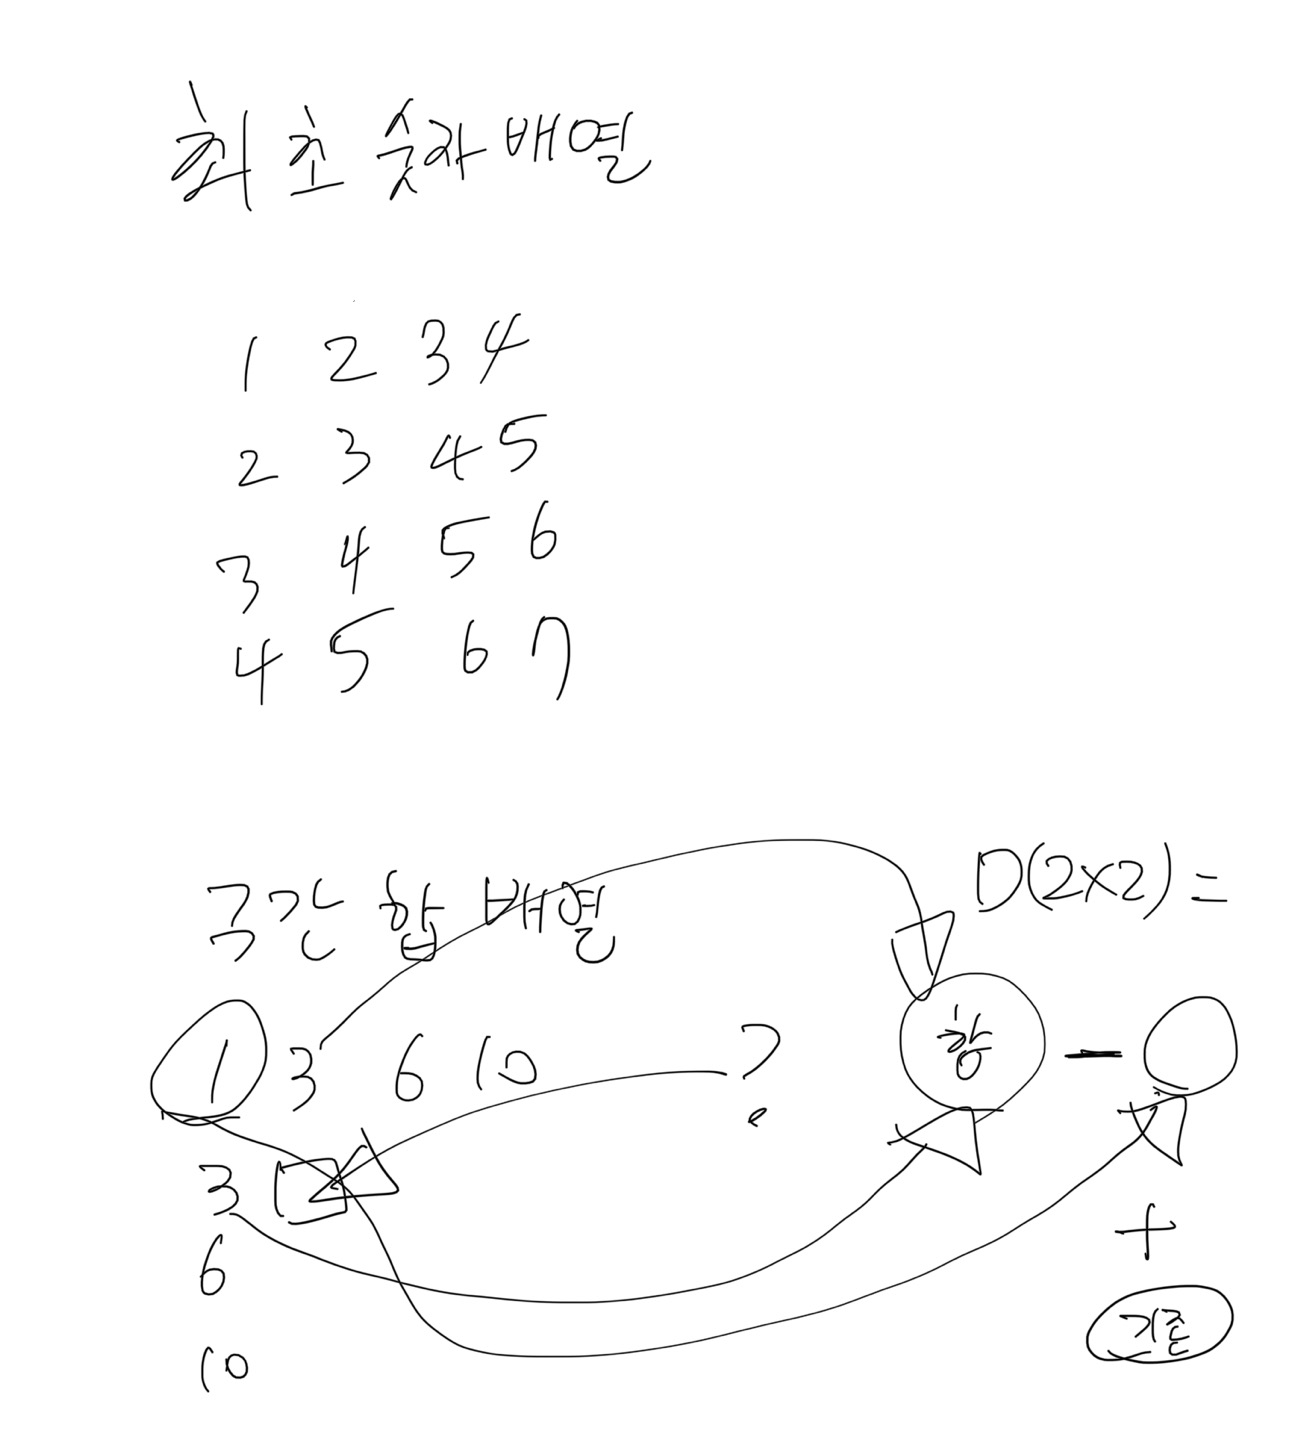 최초 숫자 배열
1 2 3 4
2 3 4 5
3 4 5 6
4 5 6 7
구간 합 배열
D(2x2) =
1 3 6 10 ?
합 -
3
+
6
기존
10